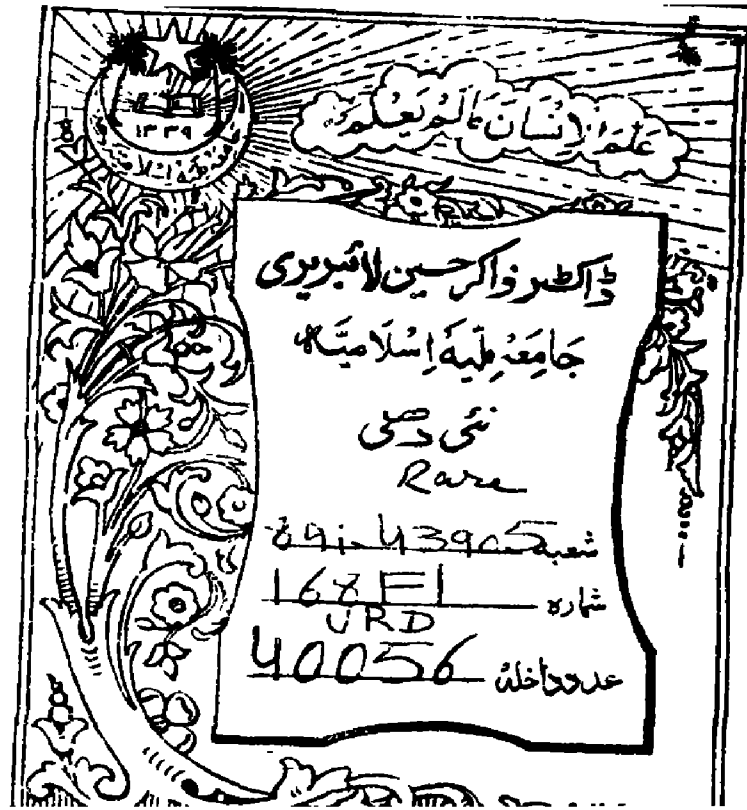 ۱۳۳۹
عَلَّمَ الْاِنْسَانَ مَالَمْ يَعْلَمْ
ڈاکٹر ذاکر حسین لائبریری
جَامِعَہ مِلّیہ اِسْلَامیّہ
نئی دھلی
Rare
شعبہ 891.43905
شمارہ 168 F1
URD
عدد داخلہ 40056